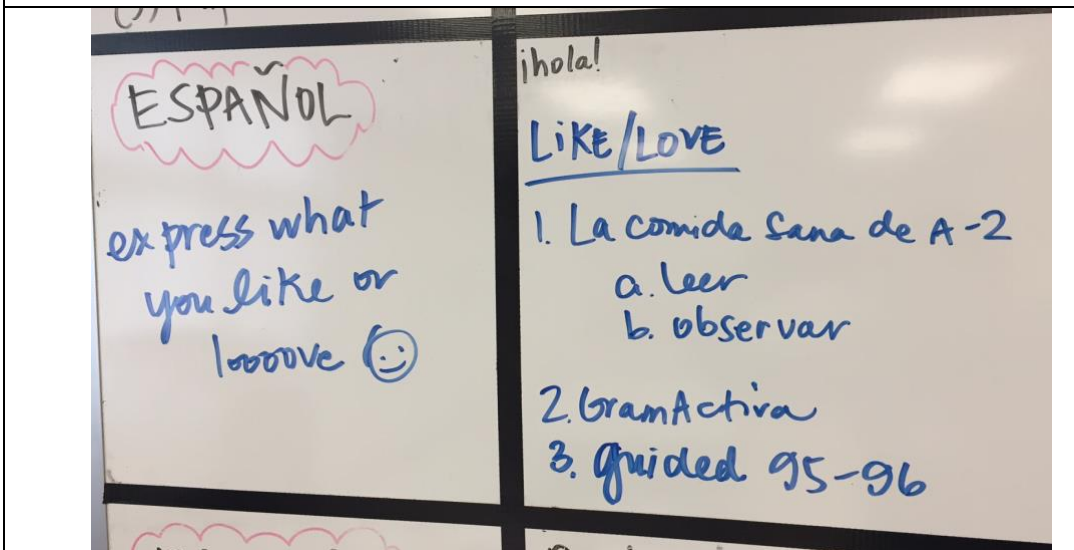 ESPAÑOL
express what
you like or
loooove
¡hola!
LiKE/LOVE
1. La comida sana de A-2
a. leer
b. observar
2. GramActiva
3. guided 95-96